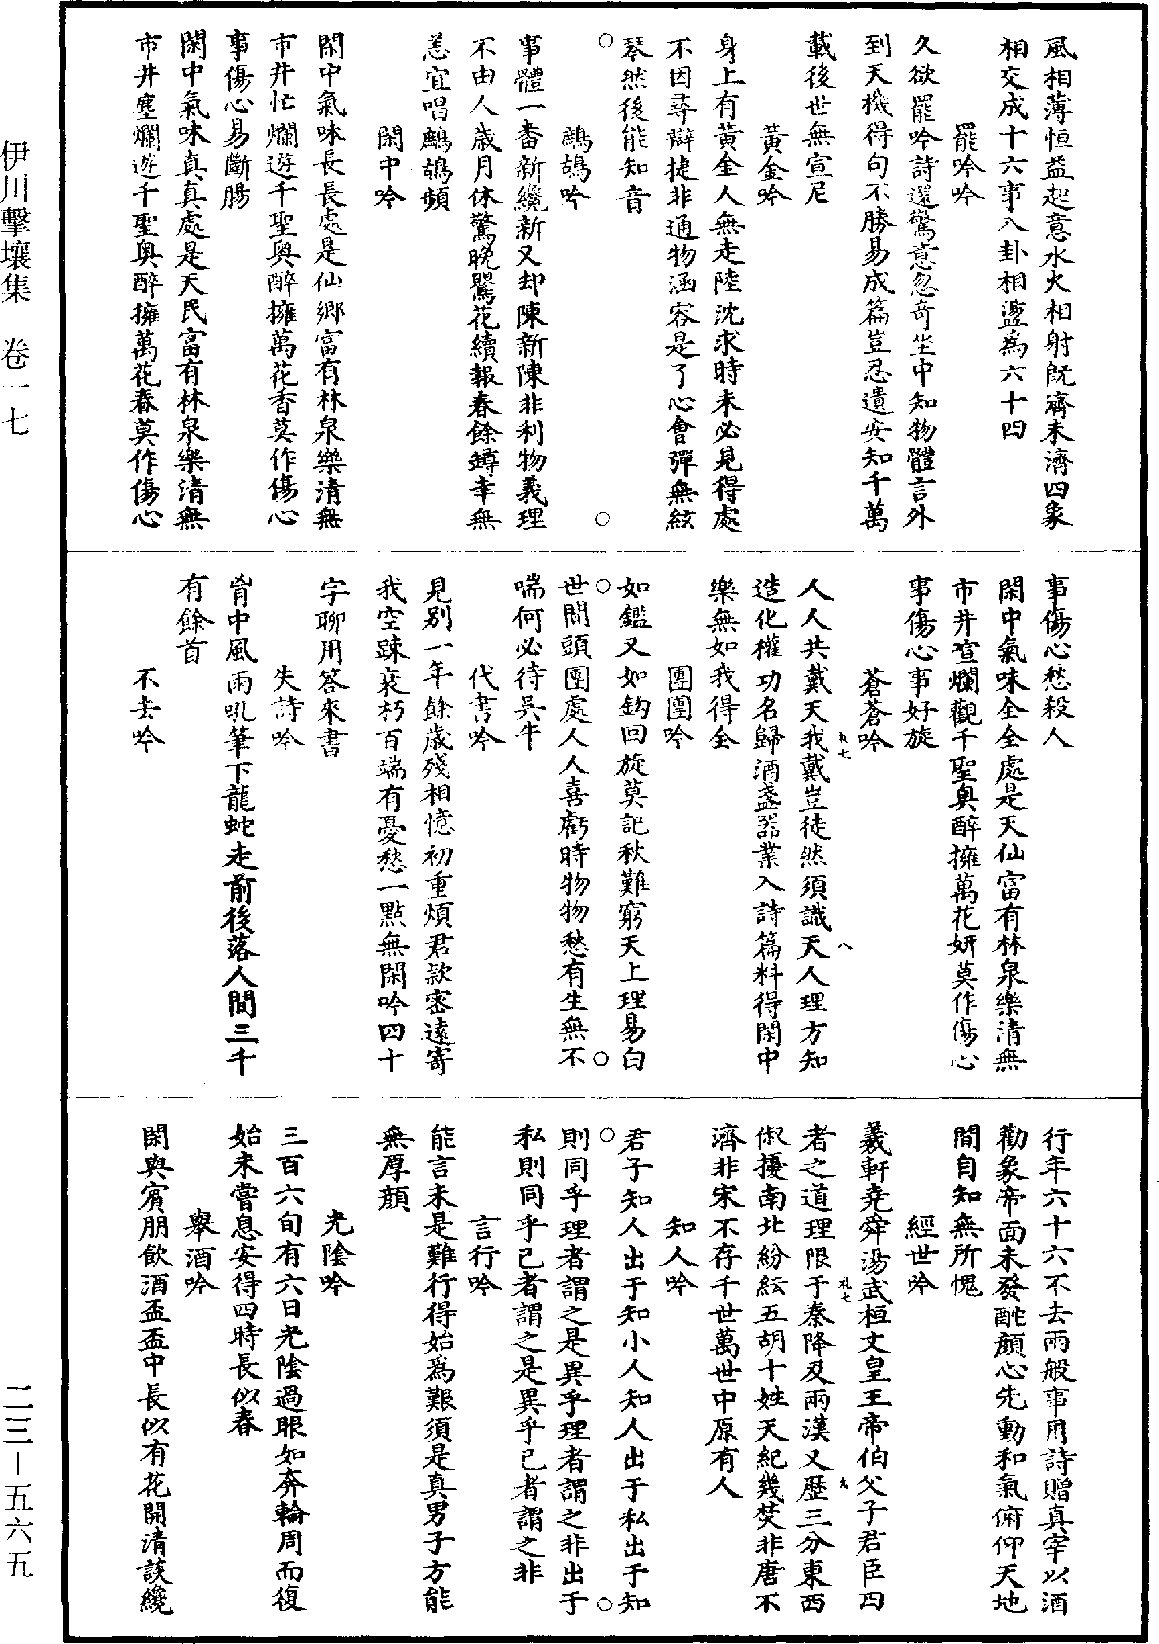 風相薄恒益起意水火相射旣濟未濟四象
相交成十六事八卦相盪爲六十四
罷吟吟
久欲罷吟詩還驚意忽奇坐中知物體言外
到天機得句不勝易成篇豈忍遺安知千萬
載後世無宣尼
黃金吟
身上有黃金人無走陸沈求時未必見得處
不因尋辯捷非通物涵容是了心會彈無絃
琴然後能知音
鷓鴣吟
事體一番新纔新又却陳新陳非利物義理
不由人歲月休驚晚鶯花續報春餘罇幸無
恙宜唱鷓鴣頻
閑中吟
閑中氣味長長處是仙鄉富有林泉樂清無
市井忙爛遊千聖奧醉擁萬花香莫作傷心
事傷心易斷腸
閑中氣味真真處是天民富有林泉樂清無
市井塵爛遊千聖奧醉擁萬花春莫作傷心
事傷心愁殺人
閑中氣味全全處是天仙富有林泉樂清無
市井喧爛觀千聖奧醉擁萬花妍莫作傷心
事傷心事好旋
蒼蒼吟
人人共戴天我戴豈徒然須識天人理方知
造化權功名歸酒盞器業入詩篇料得閑中
樂無如我得全
團團吟
如鑑又如鈎回旋莫記秋難窮天上理易白
世間頭團處人人喜虧時物物愁有生無不
喘何必待吳牛
代書吟
見別一年餘歲殘相憶初重煩君款密遠寄
我空疎衰朽百端有憂愁一點無閑吟四十
字聊用答來書
失詩吟
胷中風雨吼筆下龍蛇走前後落人間三千
有餘首
不去吟
行年六十六不去兩般事用詩贈真宰以酒
勸象帝面未發酡顏心先動和氣俯仰天地
間自知無所愧
經世吟
羲軒堯舜湯武桓文皇王帝伯父子君臣四
者之道理限于秦降及兩漢又歷三分東西
俶擾南北紛紜五胡十姓天紀幾焚非唐不
濟非宋不存千世萬世中原有人
知人吟
君子知人出于知小人知人出于私出于知
則同乎理者謂之是異乎理者謂之非出于
私則同乎己者謂之是異乎己者謂之非
言行吟
能言未是難行得始爲艱須是真男子方能
無厚顏
光陰吟
三百六旬有六日光陰過眼如奔輪周而復
始未嘗息安得四時長似春
舉酒吟
閑與賓朋飲酒盃盃中長似有花開清談纔
伊川擊壤集 卷一七
二三—五六五